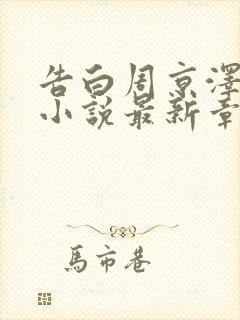 告白周京澤
小說最新章
馬市巷